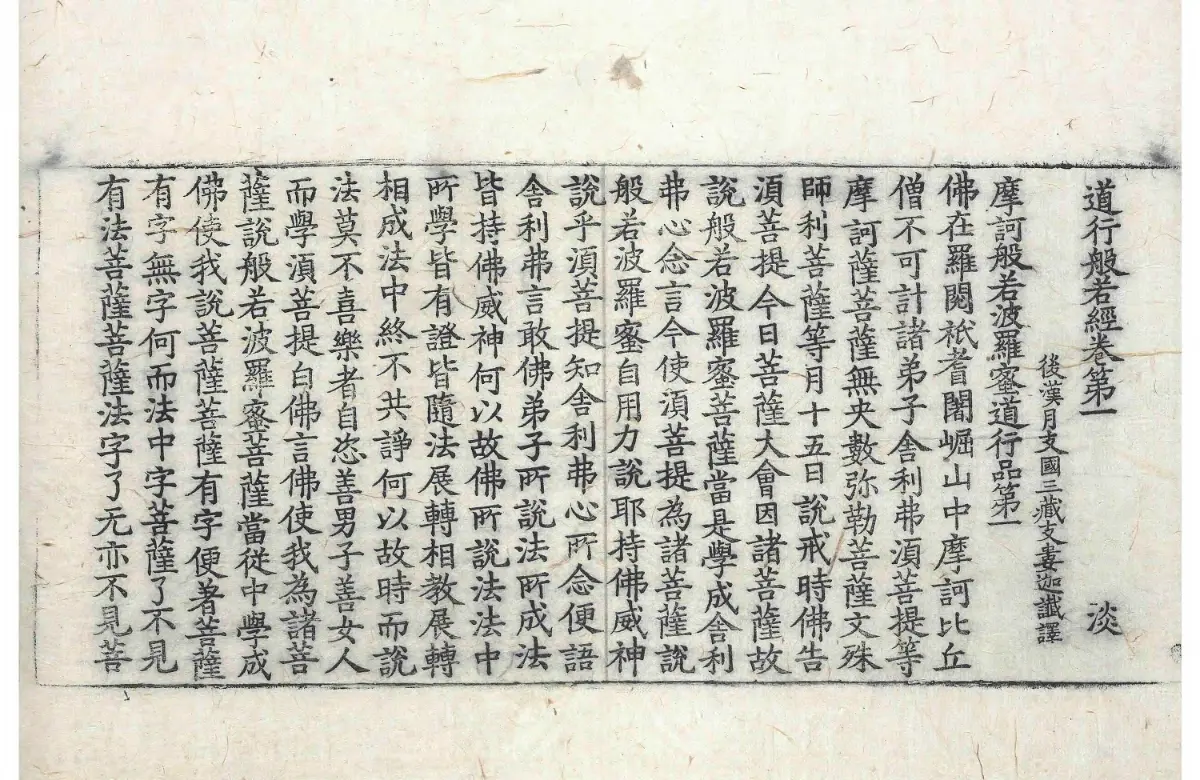 道行般若經卷第一 淡
後漢月支國三藏支婁迦讖譯
摩訶般若波羅蜜道行品第一
佛在羅閱祇耆闍崛山中摩訶比丘
僧不可計諸弟子舍利弗湏菩提等
摩訶薩菩薩無央數弥勒菩薩文殊
師利菩薩等月十五日說戒時佛告
湏菩提今日菩薩大會因諸菩薩故
說般若波羅蜜菩薩當是學成舍利
弗心念言今使湏菩提為諸菩薩說
般若波羅蜜自用力說耶持佛威神
說乎湏菩提知舍利弗心所念便語
舍利弗言敢佛弟子所說法所成法
皆持佛威神何以故佛所說法法中
所學皆有證皆隨法展轉相教展轉
相成法中終不共諍何以故時而說
法莫不喜樂者自恣善男子善女人
而學湏菩提白佛言佛使我為諸菩
薩說般若波羅蜜菩薩當從中學成
佛使我說菩薩菩薩有字便著菩薩
有字無字何而法中字菩薩了不見
有法菩薩菩薩法字了无亦不見菩